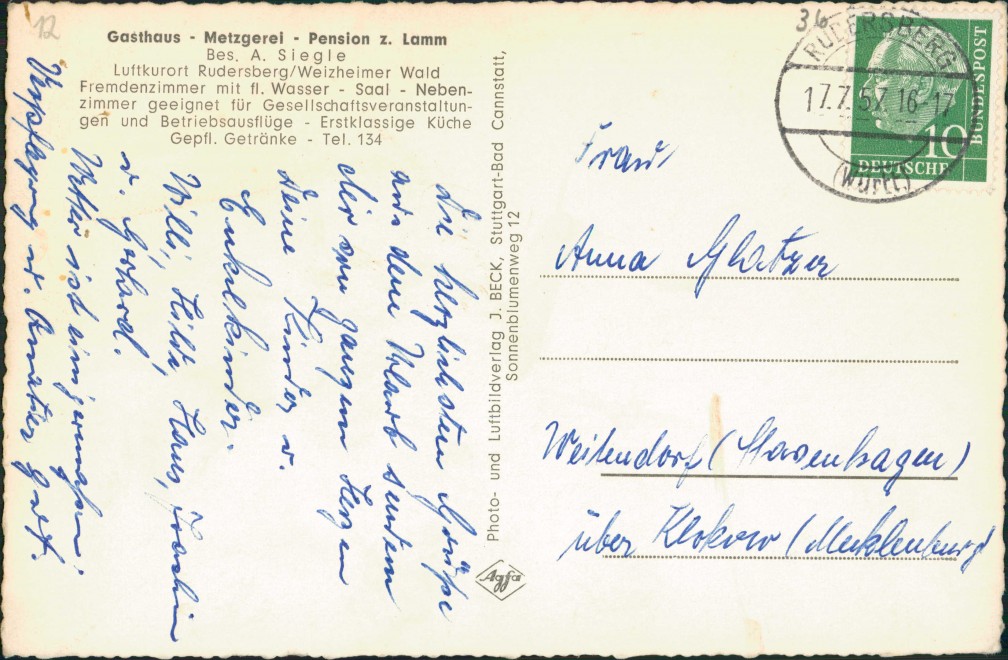 12
Gasthaus - Metzgerei - Pension z. Lamm
Bes. A. Siegle
Luftkurort Rudersberg/Weizheimer Wald
Fremdenzimmer mit fl. Wasser - Saal - Neben-
zimmer geeignet für Gesellschaftsveranstaltun-
gen und Betriebsausflüge - Erstklassige Küche
Gepfl. Getränke - Tel. 134
Die herzlichsten Grüße
aus dem Urlaub senden
dir von ganzem Herzen
Deine Kinder u.
Enkelkinder.
Willi, Hilde, Hans, Joachim
u. Gerhard.
Wetter ist einigermaßen.
Verpflegung u. Quartier gut.
Photo- und Luftbildverlag J. BECK, Stuttgart-Bad Cannstatt,
Sonnenblumenweg 12
Agfa
36
RUDERSBERG
17.7.57.16-17
(Württ)
10
DEUTSCHE
BUNDESPOST
Frau
Anna Glatzer
Weitendorf (Havenhagen)
über (Mecklenburg